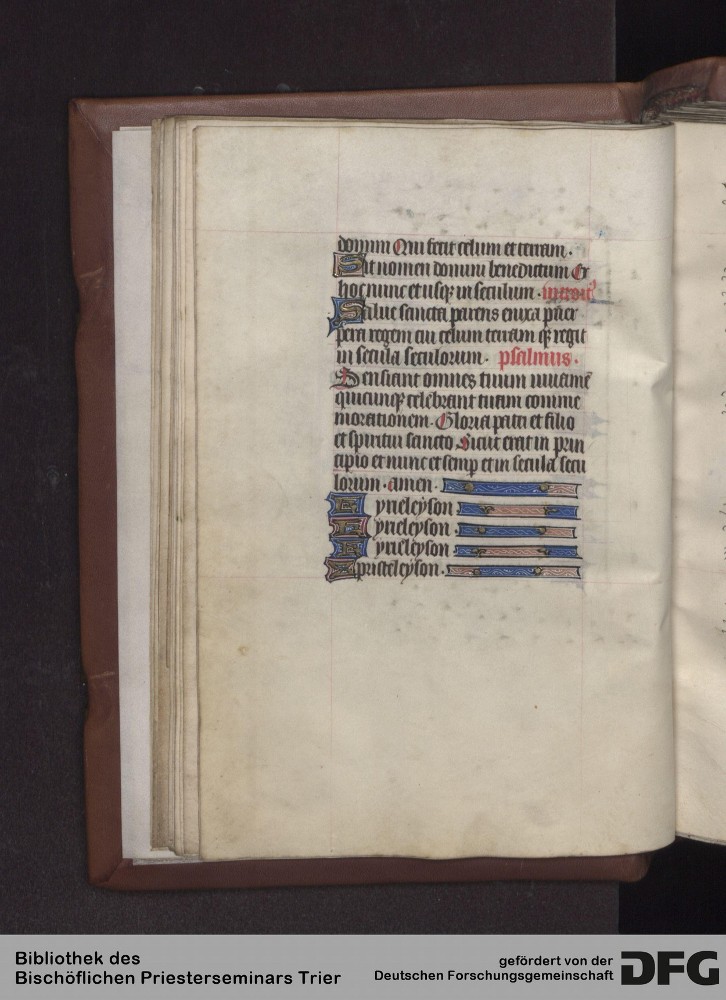 domini Qui fecit celum et terram.
Sit nomen domini benedictum Ex
hoc nunc et usqꝫ in seculum. introitꝰ
Salue sancta parens enixa puer
pera regem qui celum terram qꝫ regit
in secula seculorum. psalmus.
Sentiant omnes tuum iuuamē
quicunqꝫ celebrant tuam comme
morationem. Gloria patri et filio
et spiritui sancto Sicut erat in prin
cipio et nunc et semꝑ et in secula secu
lorum. amen.
Kyrieleyson
Kyrieleyson.
Kyrieleyson
Xpristeleyson.
Bibliothek des
Bischöflichen Priesterseminars Trier
gefördert von der
Deutschen Forschungsgemeinschaft
DFG